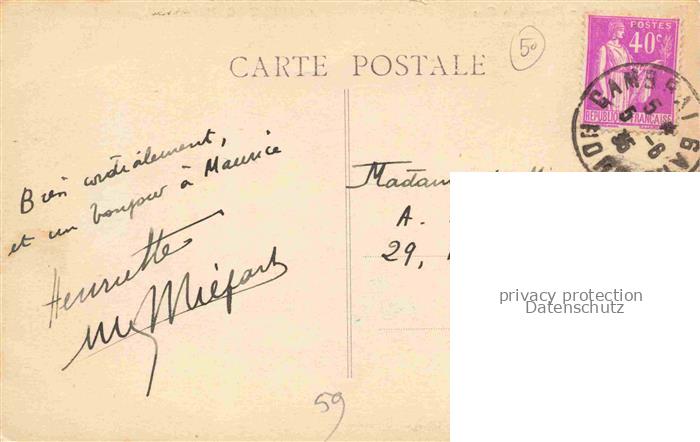 50
POSTES
40c
RÉPUBLIQUE FRANÇAISE
CAMBRAI GARE
5
5 -8
35
NORD
CARTE POSTALE
Bien cordialement,
et un bonjour à Maurice
Henriette
Madam
A.
29,
privacy protection
Datenschutz
59